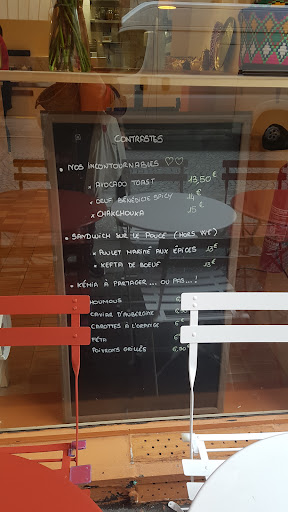 CONTRASTES
• NOS INCONTOURNABLES ♡♡
× AVOCADO TOAST 13,50€
× OEUF BÉNÉDICTE SPICY 14€
× CHAKCHOUKA 15€
• SANDWICH SUR LE POUCE (HORS WE)
× POULET MARINÉ AUX ÉPICES 13€
× KEFTA DE BOEUF 13€
• KÉMIA À PARTAGER ... OU PAS ... !
HOUMOUS
CAVIAR D'AUBERGINE
CAROTTES À L'ORANGE
FÉTA
POIVRONS GRILLÉS